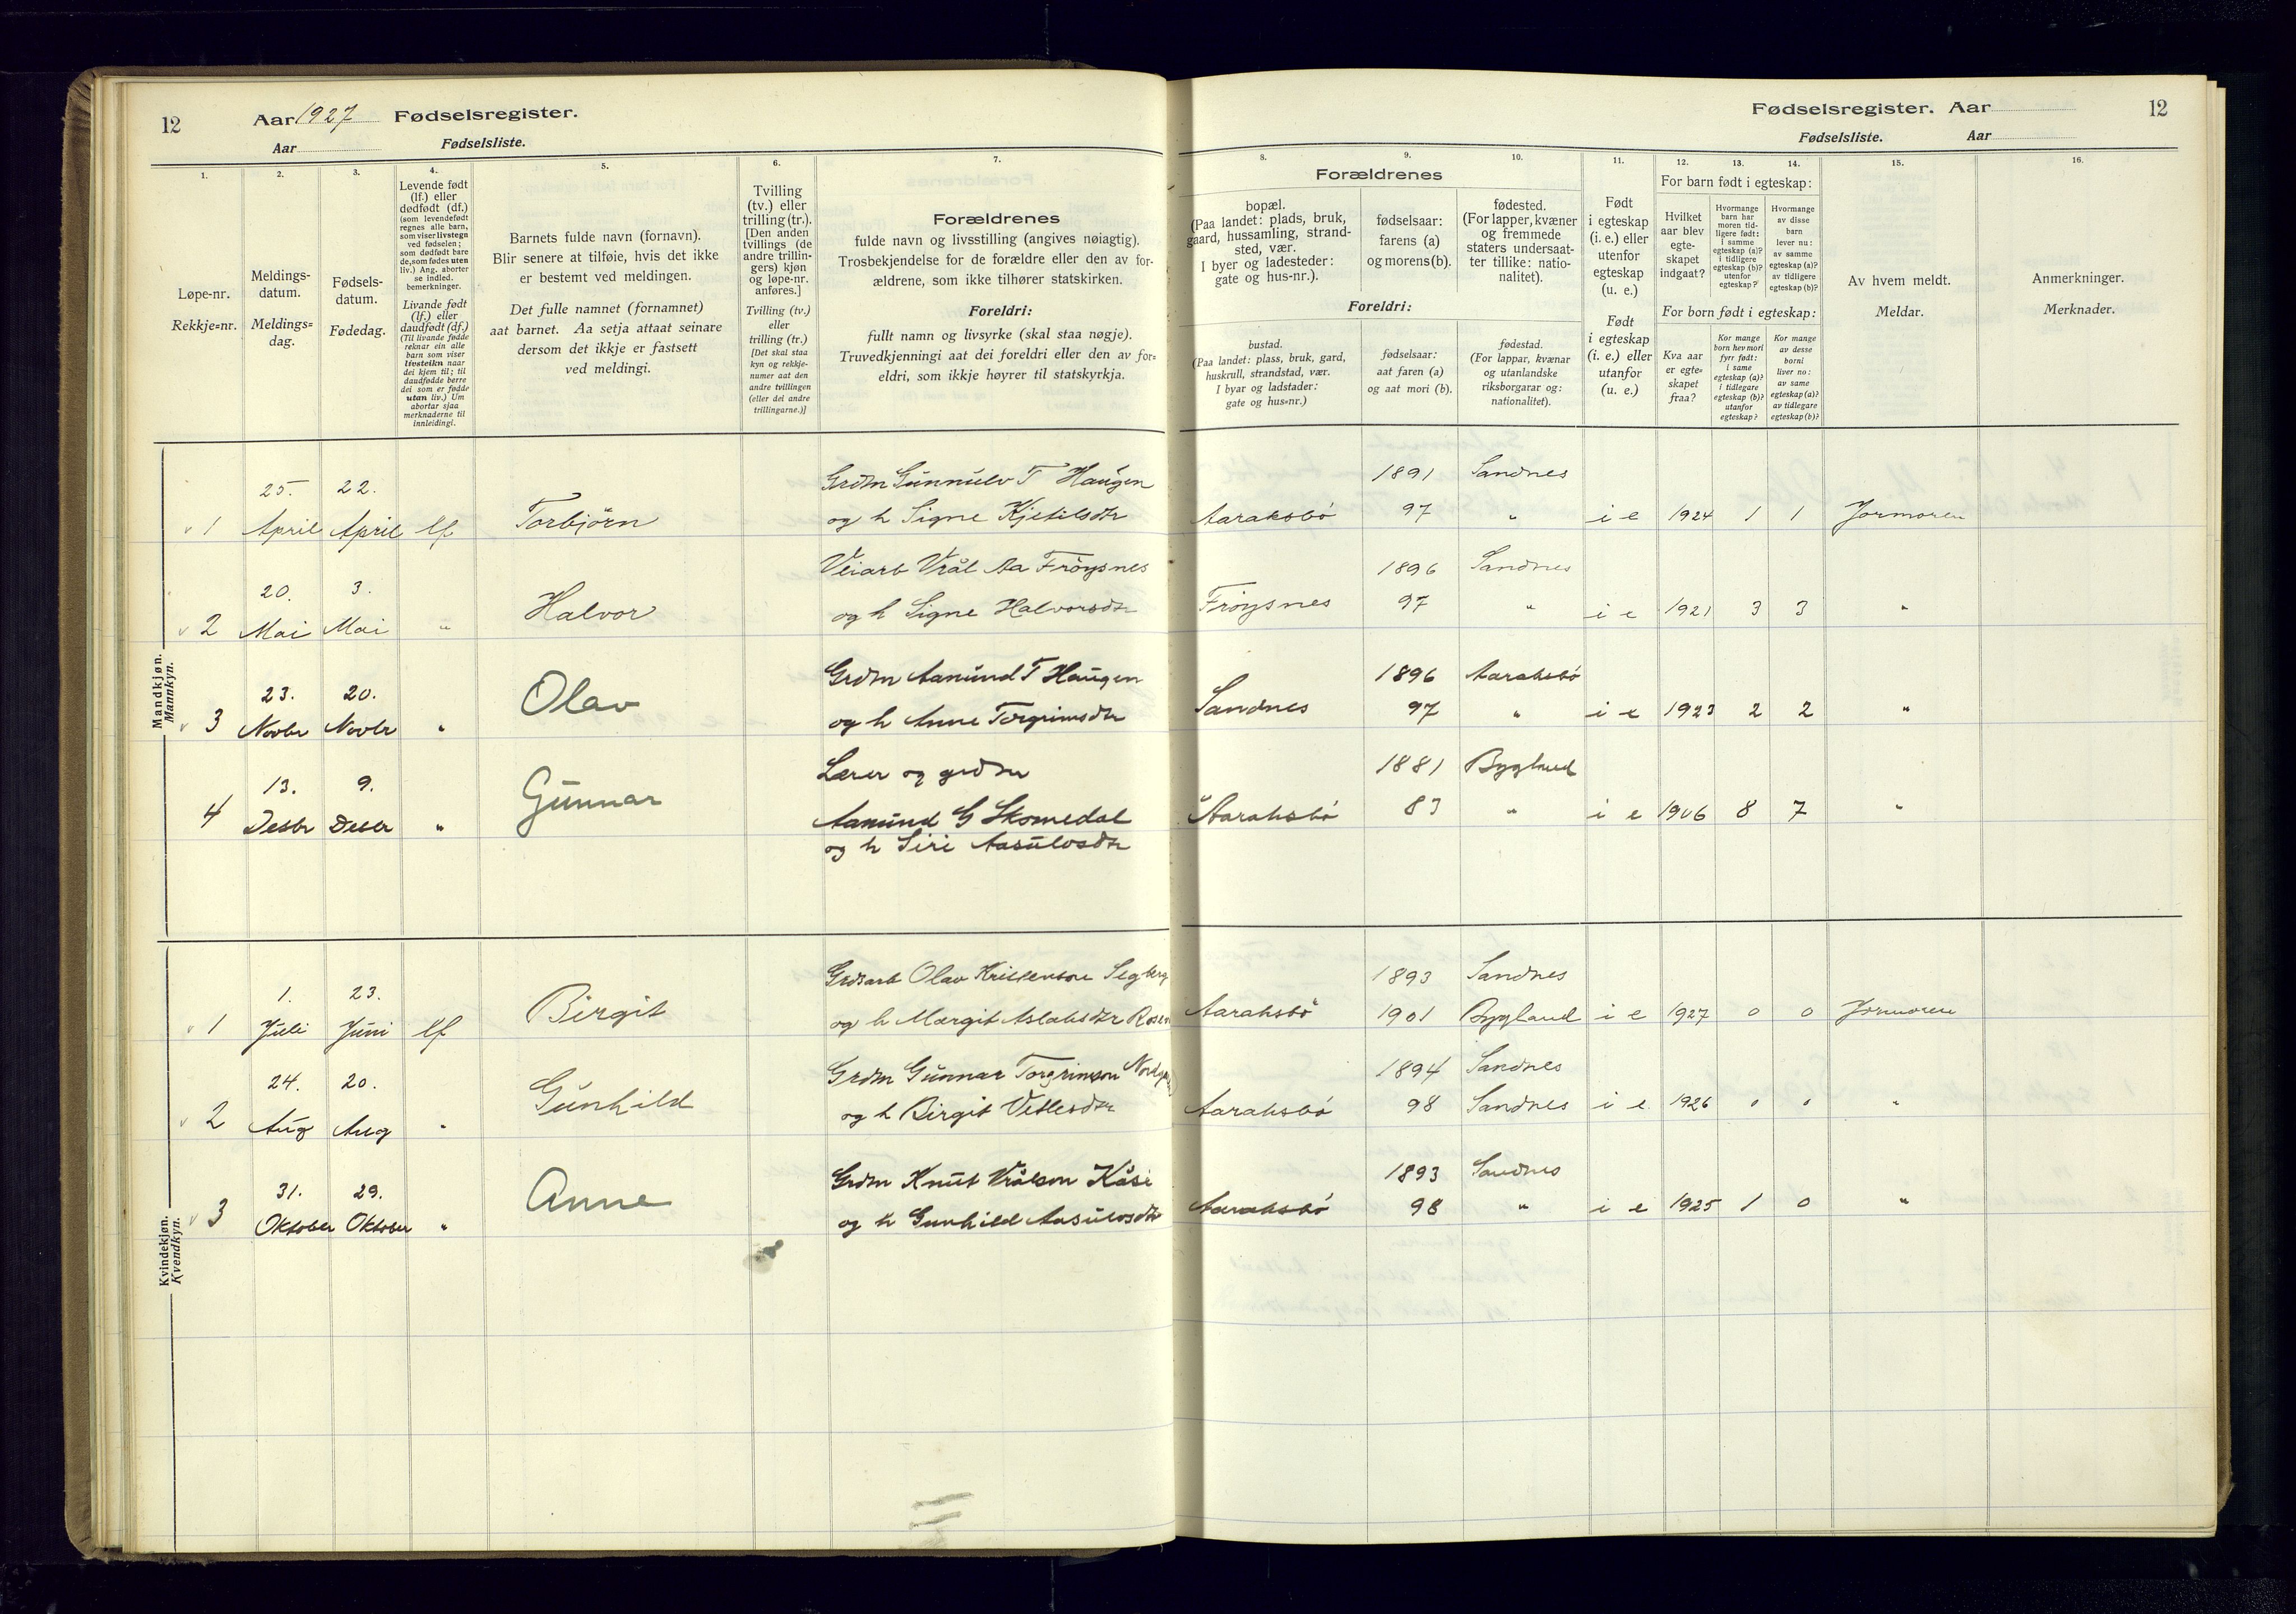 12
Aar 1927 Fødselsregister.
Aar Fødselsliste.
1.
Løpe-nr.
Rekkje=nr.
2.
Meldings-
datum.
Meldings=
dag.
3.
Fødsels-
datum.
Fødedag.
4.
Levende født
(lf.) eller
dødfødt (df.)
(som levendefødt
regnes alle barn,
som viser livstegn
ved fødselen;
som dødfødt bare
de, som fødes uten
liv.) Ang. aborter
se indled.
bemerkninger.
Livande født
(lf.) eller
daudfødt (df.)
(Til livande fødde
reknar ein alle
barn som viser
livsteikn naar
dei kjem til; til
daudfødde berre
dei som er fødde
utan liv.) Um
abortar sjaa
merknaderne til
innleidingi.
5.
Barnets fulde navn (fornavn).
Blir senere at tilføie, hvis det ikke
er bestemt ved meldingen.
Det fulle namnet (fornamnet)
aat barnet. Aa setja attaat seinare
dersom det ikkje er fastsett
ved meldingi.
6.
Tvilling
(tv.) eller
trilling (tr.).
[Den anden
tvillings (de
andre trillin-
gers) kjøn
og løpe-nr.
anføres.]
Tvilling (tv.)
eller
trilling (tr.)
[Det skal staa
kyn og rekkje-
numer aat den
andre tvillingen
(eller dei andre
trillingarne.)]
7.
Forældrenes
fulde navn og livsstilling (angives nøiagtig).
Trosbekjendelse for de forældre eller den av for-
ældrene, som ikke tilhører statskirken.
Foreldri:
fullt namn og livsyrke (skal staa nøgje).
Truvedkjenningi aat dei foreldri eller den av for=
eldri, som ikkje høyrer til statskyrkja.
Mandkjøn.
Mannkyn.
25. 22. Grdm Gunnulv T Haugen
1 April April lf Torbjörn og h Signe Kjetilsdtr
20. 3. Veiarb Vrål Aa Fröysnes
2 Mai Mai " Halvor og h Signe Halvorsdtr
23. 20. Grdm Aamund T Haugen
3 Novbr Novbr " Olav og h Anne Torgrimsdtr
13. 9. Lærer og grdm
4 Desbr Desbr " Gunnar Aamund G Skomedal
og h Siri Aasulvsdtr
Kvindekjøn.
Kvendkyn.
1. 23. Grdsarb Olav Kristensone Segberg
1 Juli Juni lf Birgit og h Margit Aslaksdtr
24. 20. Grdm Gunnar Torgrimson
2 Aug Aug " Gunhild og h Birgit Vetlesdtr
31. 29. Grdm Knut Vrålson Kåsi
3 Oktober Oktober " Anne og h Gunhild Aasulvsdtr
Fødselsregister. Aar 12
Fødselsliste. Aar
Forældrenes
8.
bopæl.
(Paa landet: plads, bruk,
gaard, hussamling, strand-
sted, vær.
I byer og ladesteder:
gate og hus-nr.).
9.
fødselsaar:
farens (a)
og morens (b).
10.
fødested.
(For lapper, kvæner
og fremmede
staters undersaat-
ter tillike: natio-
nalitet).
Foreldri:
bustad.
(Paa landet: plass, bruk, gard,
huskrull, strandstad, vær.
I byar og ladstader:
gate og hus=nr.)
fødselsaar:
aat faren (a)
og aat mori (b).
fødestad.
(For lappar, kvænar
og utanlandske
riksborgarar og:
nationalitet).
11.
Født
i egteskap
(i. e.) eller
utenfor
egteskap
(u. e.)
Født
i egteskap
(i. e.) eller
utanfor
(u. e.)
12. 13. 14.
For barn født i egteskap:
Hvilket
aar blev
egte-
skapet
indgaat?
Hvormange
barn har
moren tid-
ligere født:
i samme
egteskap (a)?
i tidligere
egteskap (b)?
utenfor
egteskap?
Hvormange
av disse
barn
lever nu:
av samme
egteskap (a)?
av tidligere
egteskap (b)?
For born født i egteskap:
Kva aar
er egte=
skapet
fraa?
Kor mange
born hev mori
fyrr født:
i same
egteskap (a)?
i tidlegare
egteskap (b)?
utanfor
egteskap?
Kor mange
av desse
borni
liver no:
av same
egteskap (a)?
av tidlegare
egteskap (b)?
15.
Av hvem meldt.
Meldar.
16.
Anmerkninger.
Merknader.
1891 Sandnes
Aaraksbö 97 " i e 1924 1 1 Jormoren
1896 Sandnes
Fröysnes 97 " i e 1921 3 3 "
1896 Aaraksbö
Sandnes 97 " i e 1923 2 2 "
1881 Bygland
Aaraksbö 83 " i e 1906 8 7 "
1893 Sandnes
Aaraksbö 1901 Bygland i e 1927 0 0 Jormoren
1894 Sandnes
Aaraksbö 98 Sandnes i e 1926 0 0 "
1893 Sandnes
Aaraksbö 98 " i e 1925 1 0 "